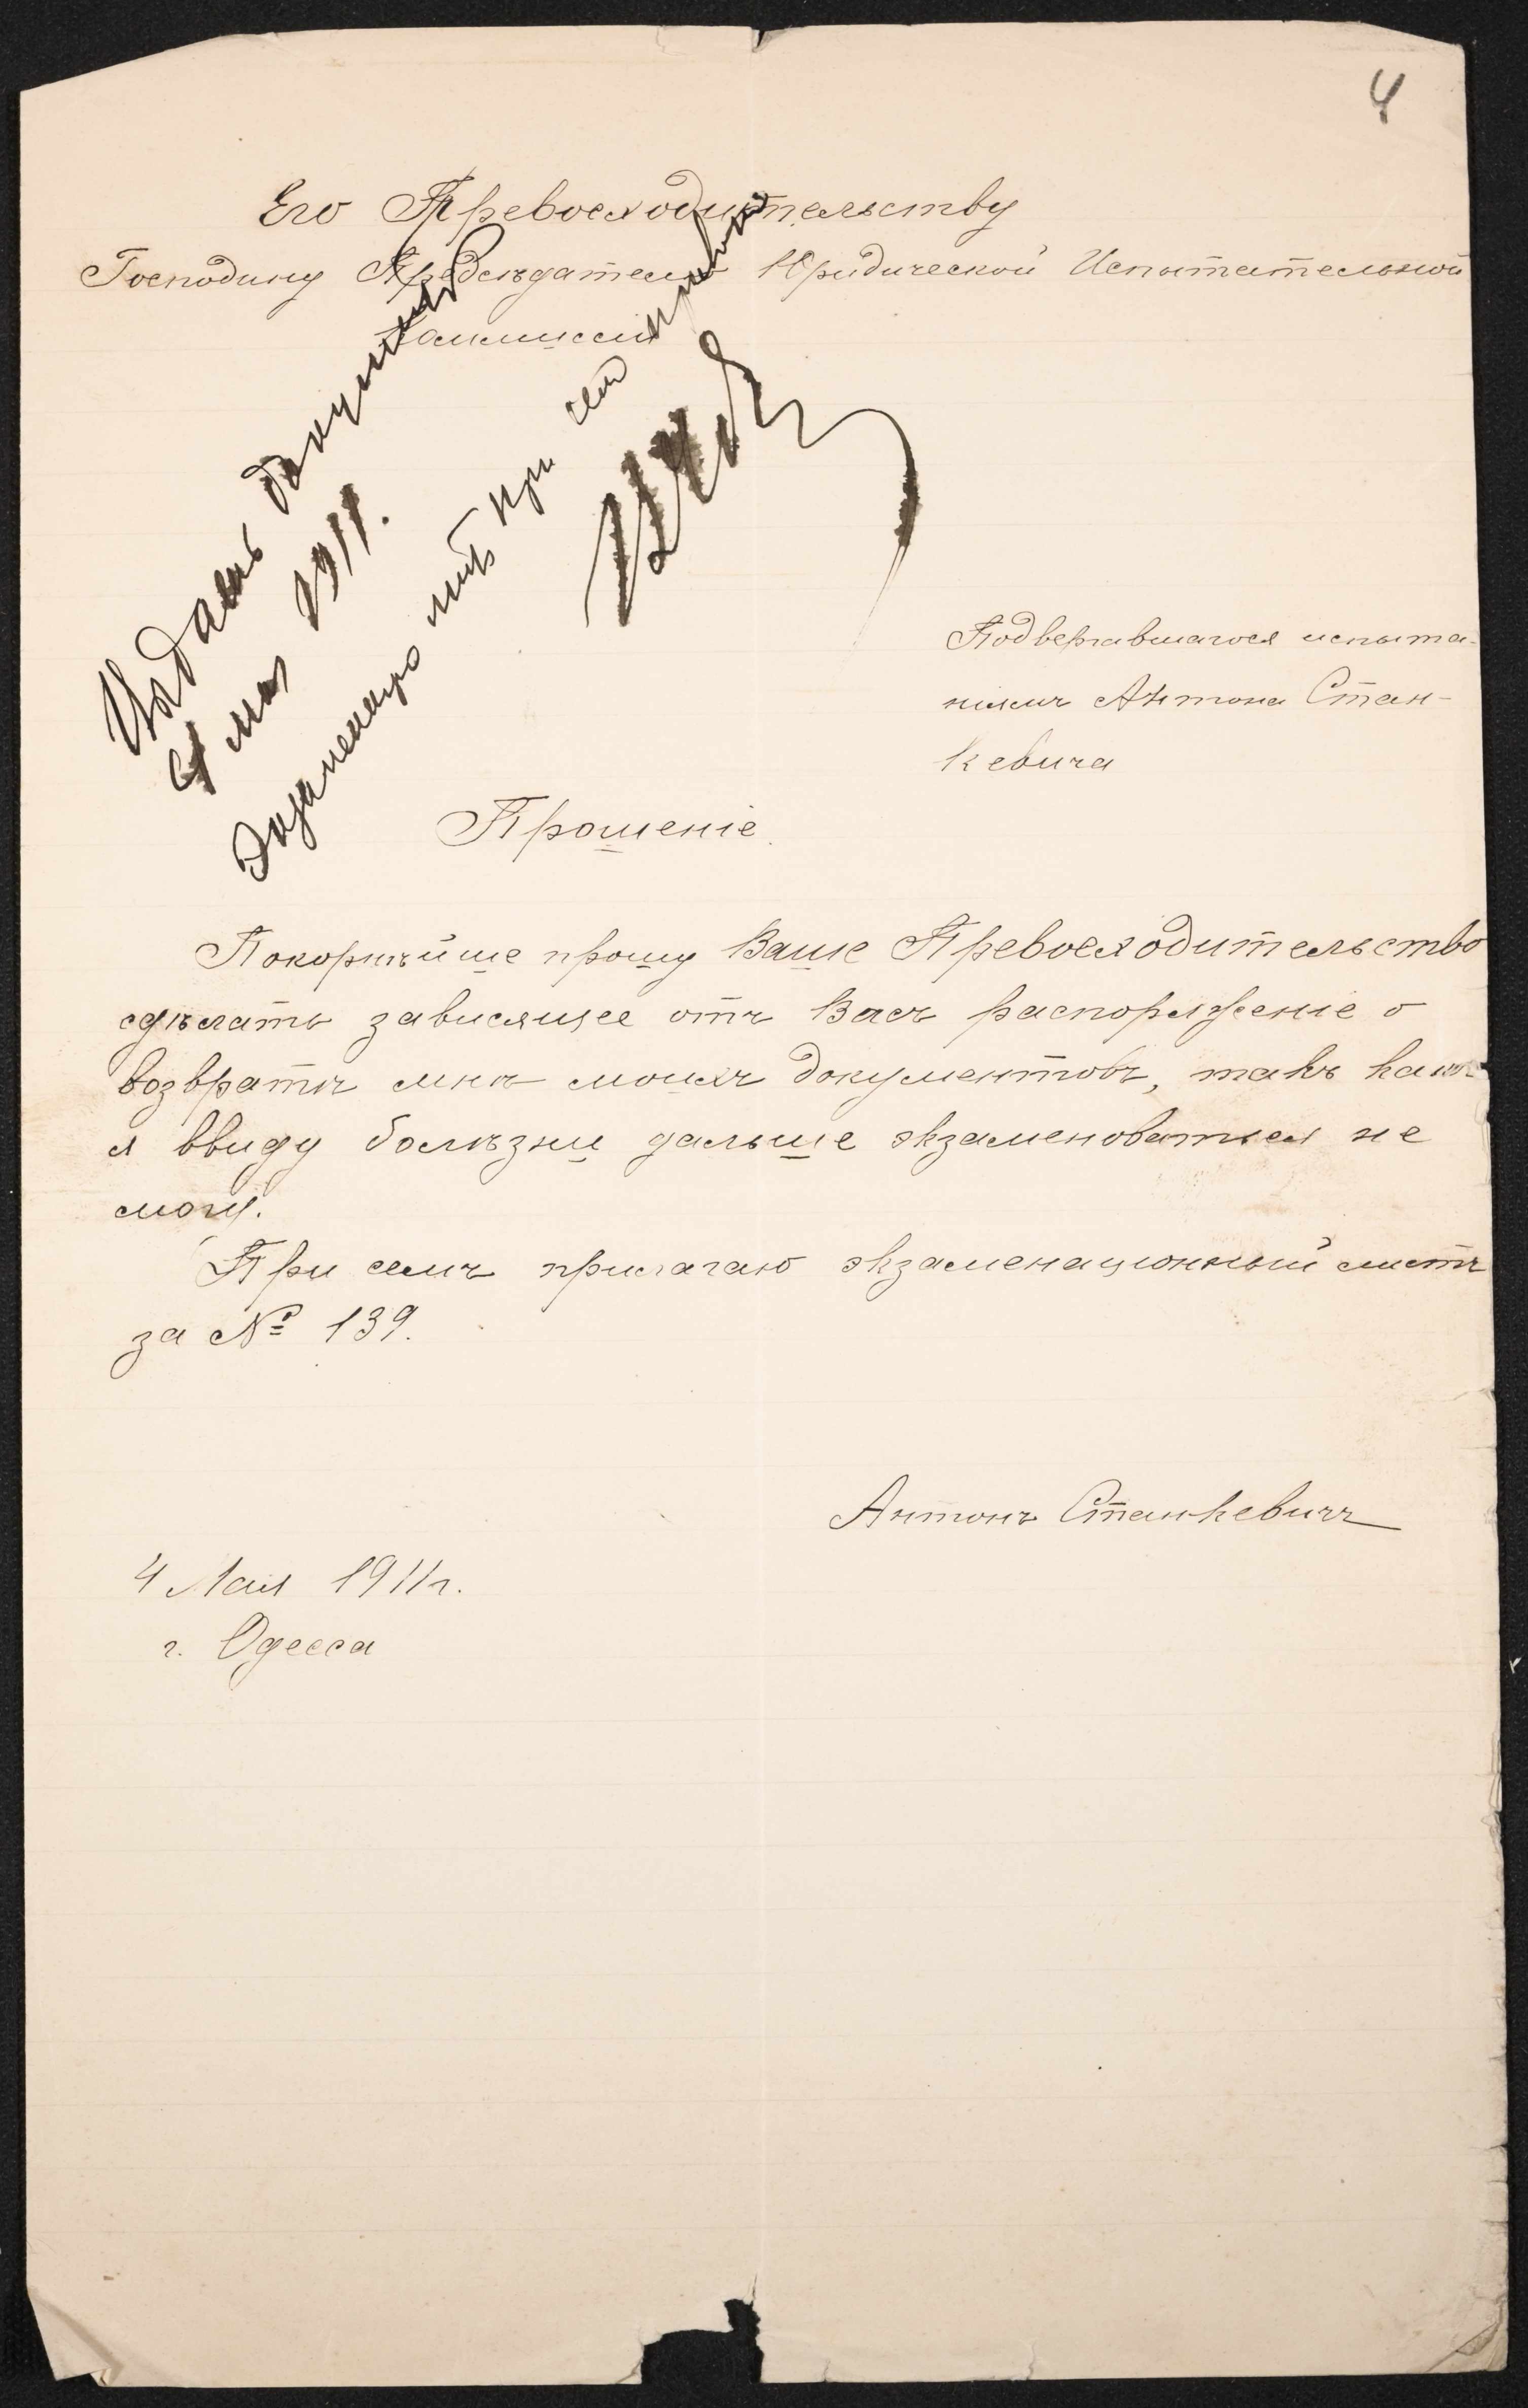 4
Его Превосходительству
Господину Предсѣдателю Юридической Испытательной
Коммиссіи
Выдать документы
4 мая 1911.
Экзаменац. листъ при семъ
Подвергавшагося испыта-
ніямъ Антона Стан-
кевича
Прошеніе.
Покорнѣйше прошу Ваше Превосходительство
сдѣлать зависящее отъ Васъ распоряженіе о
возвратѣ мнѣ моихъ документовъ, такъ какъ
я ввиду болѣзни дальше экзаменоваться не
могу.
При семъ прилагаю экзаменаціонный листъ
за № 139.
Антонъ Станкевичъ
4 Мая 1911 г.
г. Одесса